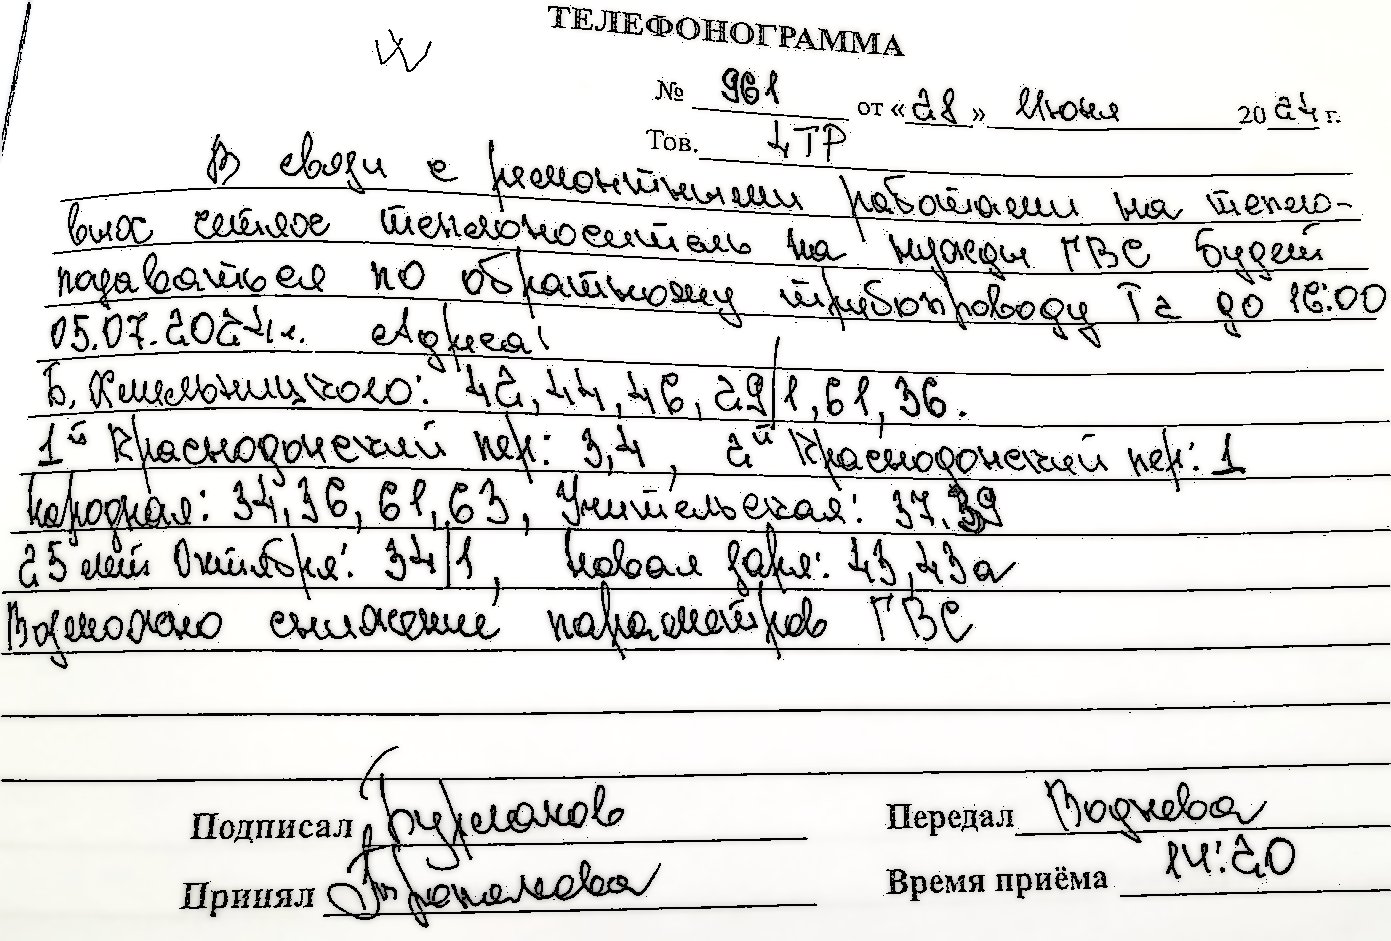 ТЕЛЕФОНОГРАММА
№ 961 от «28» Июня 2024 г.
Тов. 4ТР
В связи с ремонтными работами на тепло-
вых сетях теплоноситель на нужды ГВС будет
подаваться по обратному трубопроводу Т2 до 16:00
05.07.2024г. Адреса:
Б. Хмельницкого: 42, 44, 46, 29/1, 61, 36.
1й Краснодонский пер: 3,4, 2й Краснодонский пер: 1
Народная: 34, 36, 61, 63, Учительская: 37, 39
25 лет Октября: 34/1, Новая Заря: 43, 43а
Возможно снижение параметров ГВС
Подписал Бурлаков Передал Воднева
Принял Время приёма 14:20